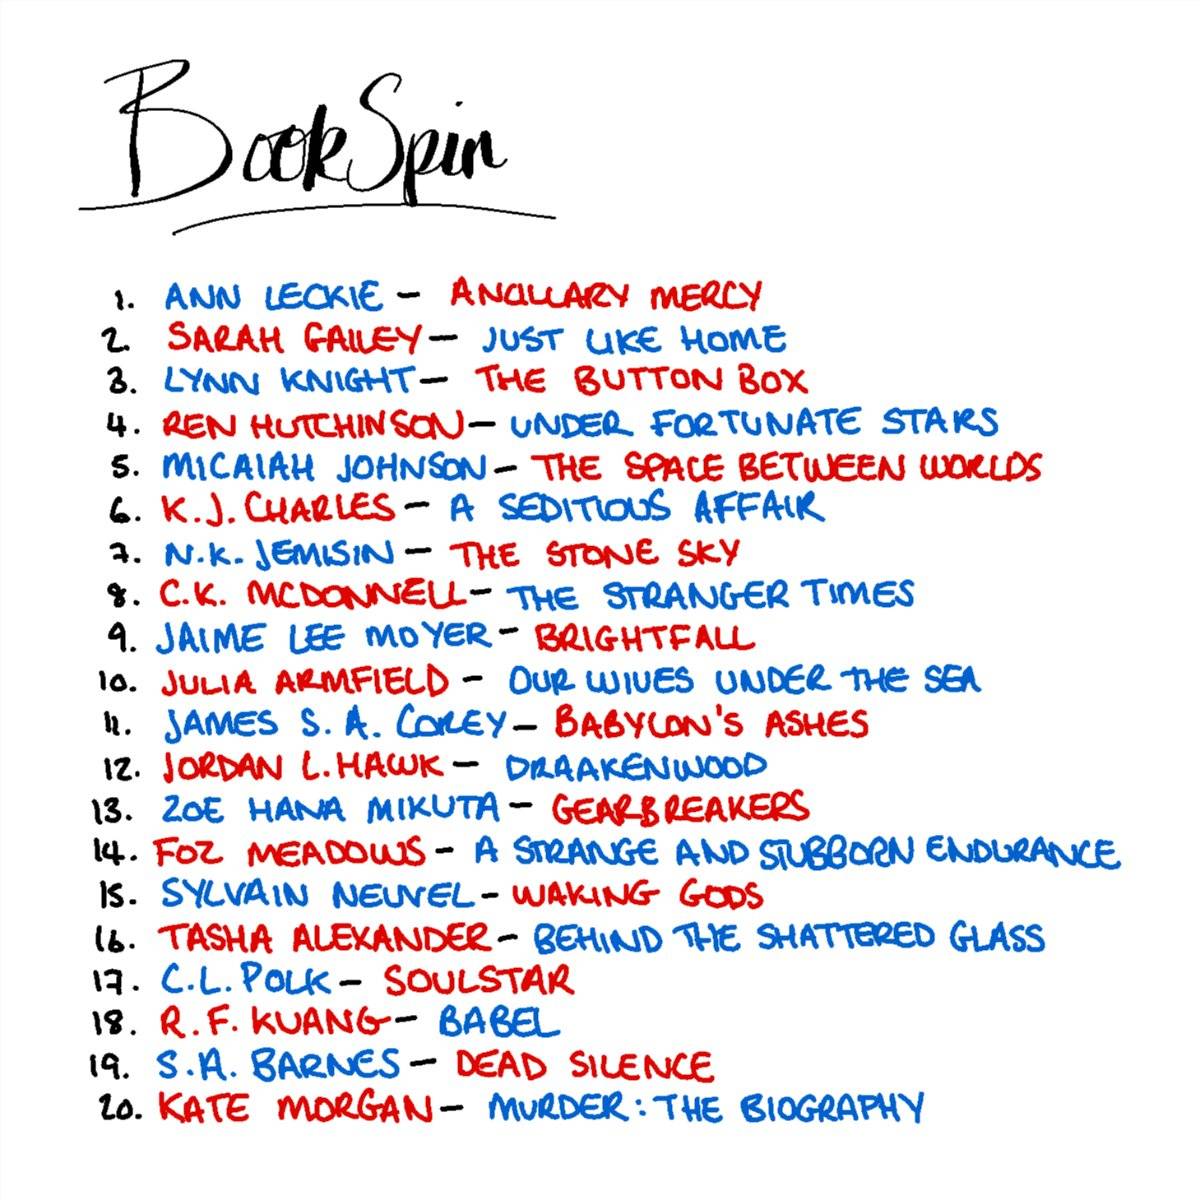 BookSpin
1. ANN LECKIE - ANCILLARY MERCY
2. SARAH GAILEY - JUST LIKE HOME
3. LYNN KNIGHT - THE BUTTON BOX
4. REN HUTCHINSON - UNDER FORTUNATE STARS
5. MICAIAH JOHNSON - THE SPACE BETWEEN WORLDS
6. K.J. CHARLES - A SEDITIOUS AFFAIR
7. N.K. JEMISIN - THE STONE SKY
8. C.K. MCDONNELL - THE STRANGER TIMES
9. JAIME LEE MOYER - BRIGHTFALL
10. JULIA ARMFIELD - OUR WIVES UNDER THE SEA
11. JAMES S. A. COREY - BABYLON'S ASHES
12. JORDAN L. HAWK - DRAAKENWOOD
13. ZOE HANA MIKUTA - GEARBREAKERS
14. FOZ MEADOWS - A STRANGE AND STUBBORN ENDURANCE
15. SYLVAIN NEUVEL - WAKING GODS
16. TASHA ALEXANDER - BEHIND THE SHATTERED GLASS
17. C.L. POLK - SOULSTAR
18. R.F. KUANG - BABEL
19. S.A. BARNES - DEAD SILENCE
20. KATE MORGAN - MURDER: THE BIOGRAPHY